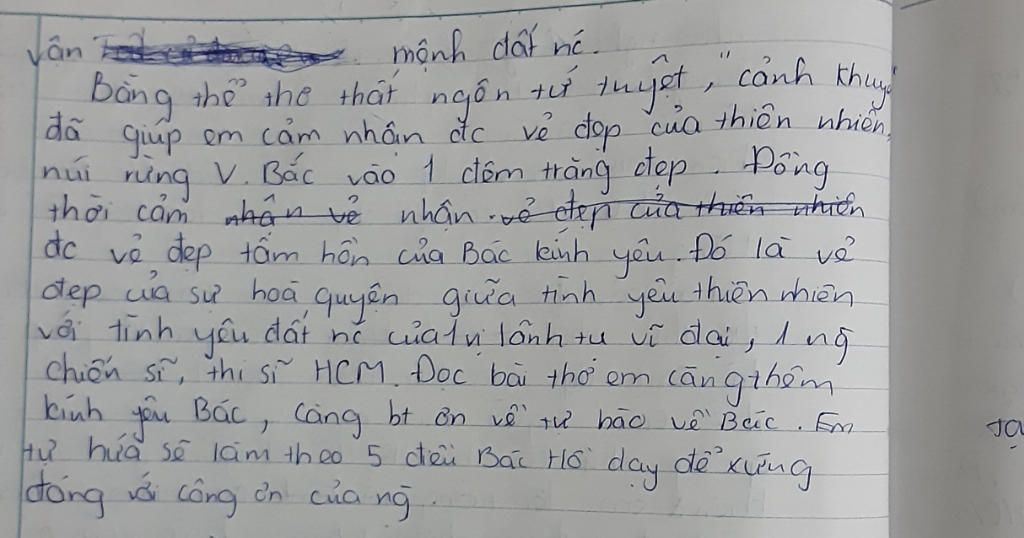 vận mệnh đất nc.
Bằng thể thơ thất ngôn tứ tuyệt, "cảnh khuy
đã giúp em cảm nhận đc vẻ đẹp của thiên nhiên,
núi rừng V. Bắc vào 1 đêm trăng đẹp. Đồng
thời cảm nhận vẻ nhận vẻ đẹp của thiên nhiên
đc vẻ đẹp tâm hồn của Bác kính yêu. Đó là vẻ
đẹp của sự hoà quyện giữa tình yêu thiên nhiên
với tình yêu đất nc của 1 vị lãnh tụ vĩ đại, 1 ng
chiến sĩ, thi sĩ HCM. Đọc bài thơ em càng thêm
kính yêu Bác, càng bt ơn về tự hào về Bác. Em
tự hứa sẽ làm theo 5 điều Bác Hồ dạy để xứng
đáng với công ơn của ng.